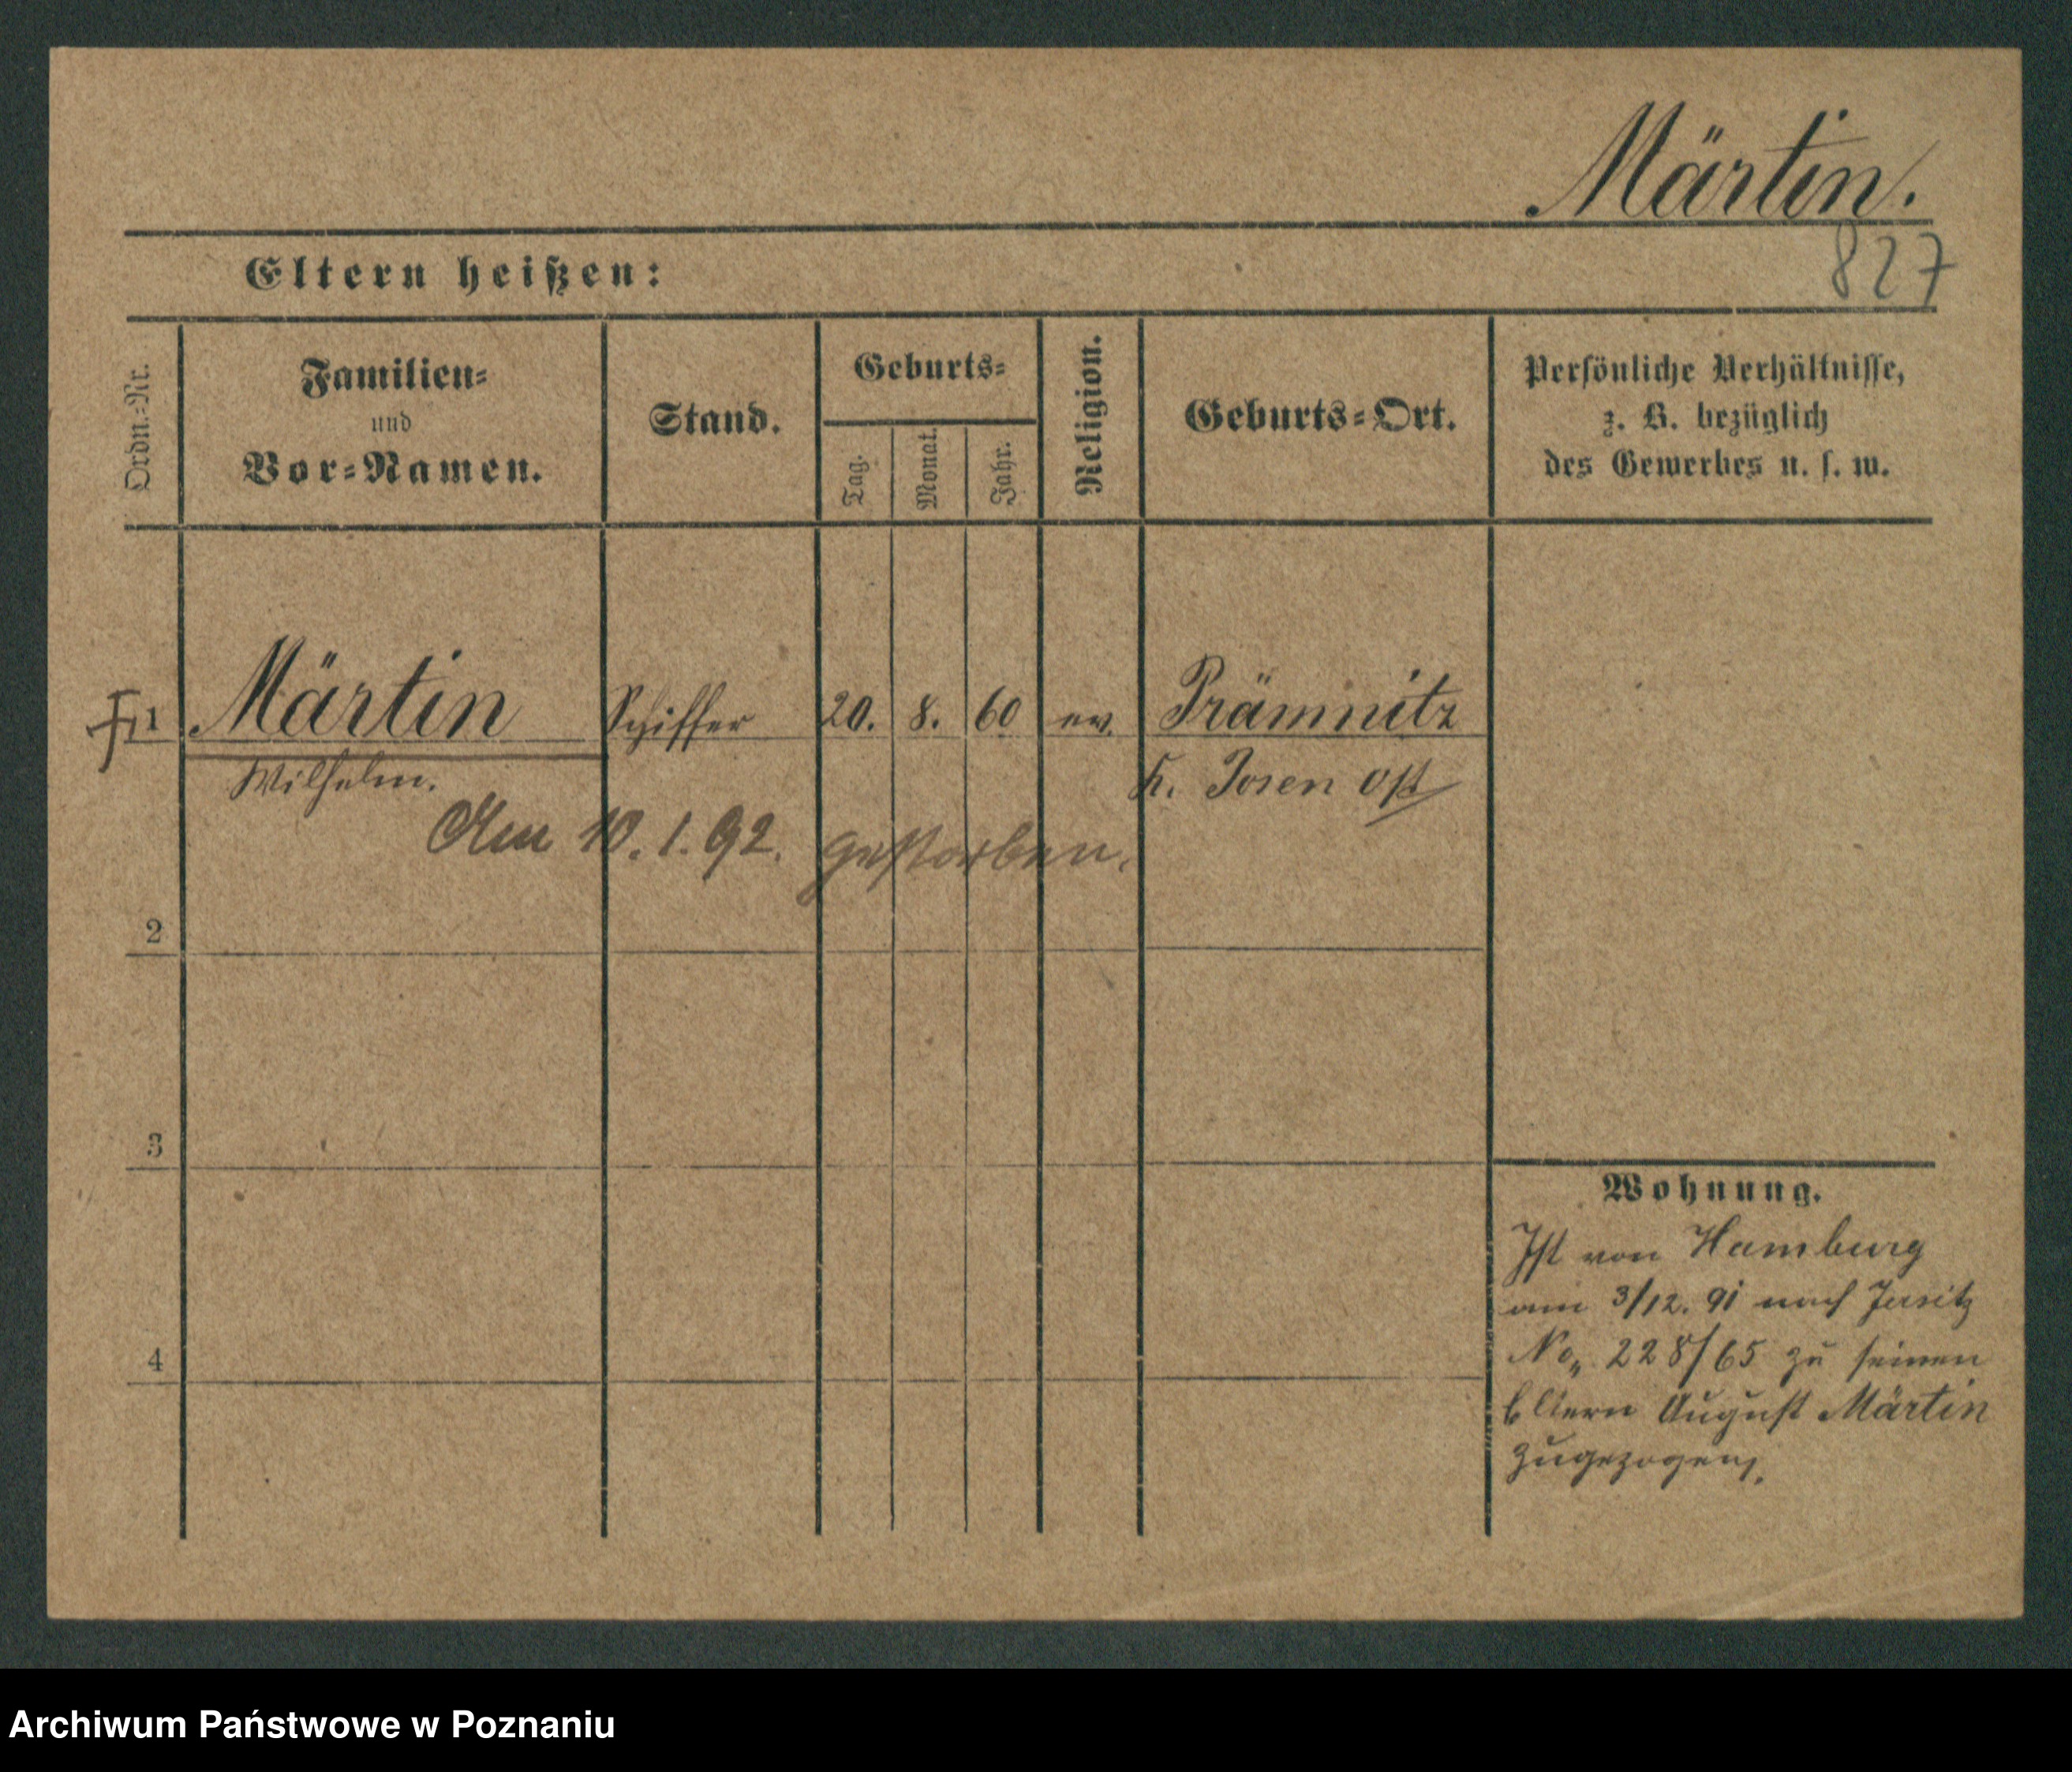 Märtin.
827
Eltern heißen:
Ordn.-Nr.
Familien-
und
Vor-Namen.
Stand.
Geburts-
Tag.
Monat.
Jahr.
Religion.
Geburts-Ort.
Persönliche Verhältnisse,
z. B. bezüglich
des Gewerbes u. s. w.
1 Märtin Schiffer 20. 8. 60 ev. Prämnitz
Wilhelm. K. Posen Ost
Am 10. 1. 92. gestorben.
2
3
4
Wohnung.
Ist von Hamburg
am 3/12. 91 nach Jersitz
No. 228/65 zu seinen
Eltern August Märtin
zugezogen.
Archiwum Państwowe w Poznaniu